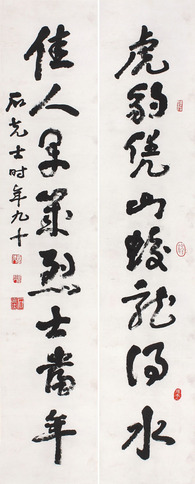 虎豹凭山蛟龙得水
佳人烈士當年
石克士时年九十